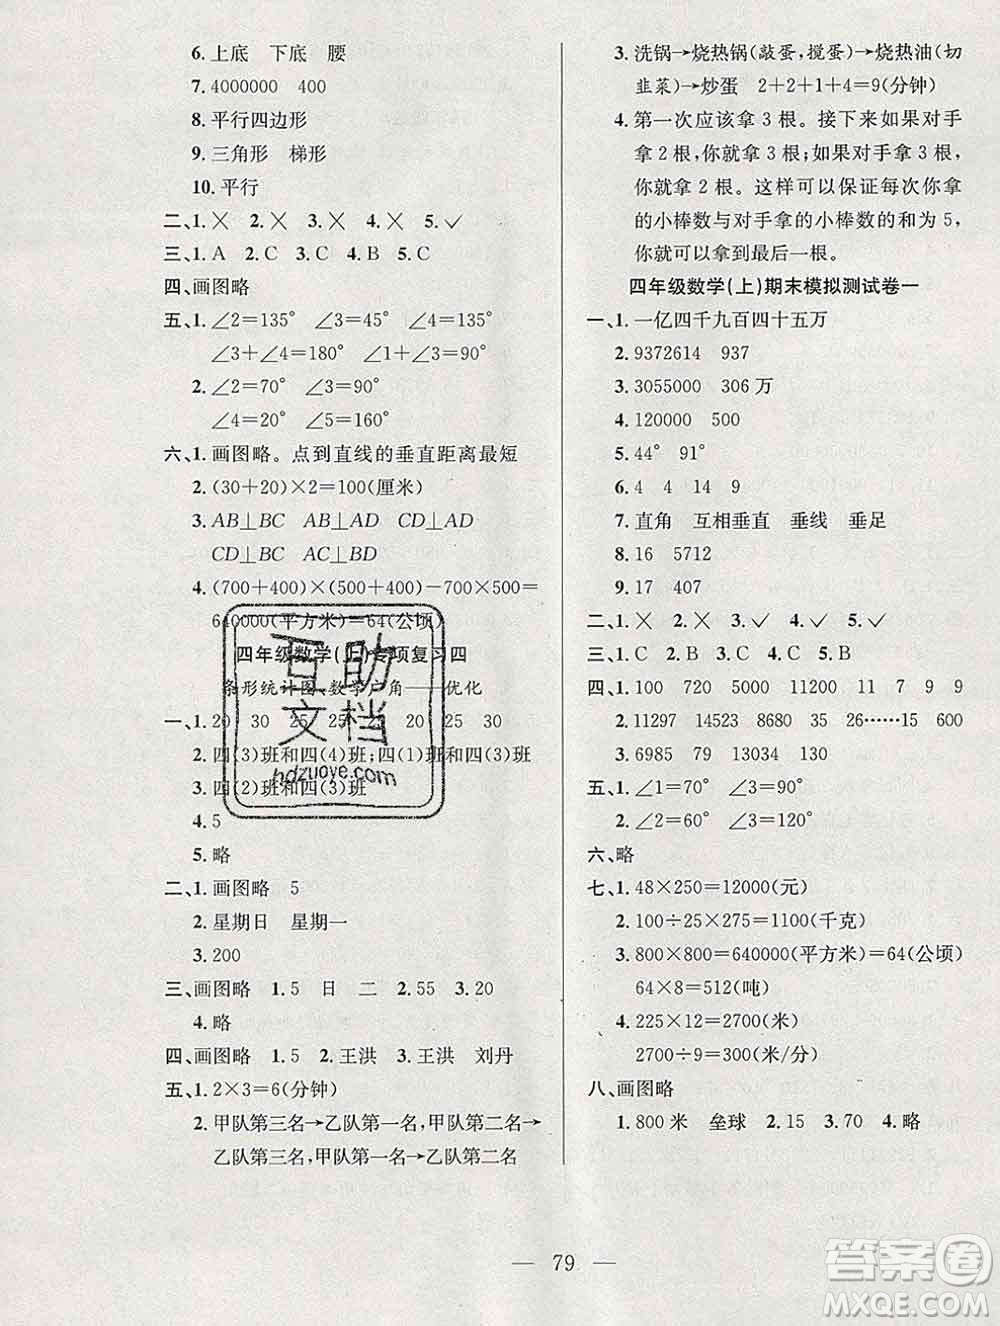 6.上底 下底 腰
7.4000000 400
8.平行四边形
9.三角形 梯形
10.平行
二、1.╳ 2.╳ 3.╳ 4.╳ 5.✓
三、1.A 2.C 3.C 4.B 5.C
四、画图略
五、1.∠2=135° ∠3=45° ∠4=135°
∠3+∠4=180° ∠1+∠2=180°
2.∠2=70° ∠3=70°
∠4=20° ∠5=160°
六、1.画图略。点到直线的垂直距离最短
2.(30+20)×2=100(厘米)
3.AB⊥BC AB⊥AD CD⊥AD
CD⊥BC AC⊥BD
4.(700+400)×(500+400)-700×500=
640000(平方米)=64(公顷)
四年级数学(上)专项复习四
条形统计图、数学广角——优化
一、1.20 30 25 25 20 25 30
2.四(3)班和四(4)班;四(1)班和四(4)班
3.四(2)班和四(3)班
4.5
5.略
二、1.画图略 5
2.星期日 星期一
3.200
三、画图略 1.5 日 二 2.55 3.20
4.略
四、画图略 1.5 2.王洪 3.王洪 刘丹
五、1.2×3=6(分钟)
2.甲队第三名→乙队第一名,甲队第二名→
乙队第三名,甲队第一名→乙队第二名
3.洗锅→烧热锅(敲蛋,搅蛋)→烧热油(切
韭菜)→炒蛋 2+2+1+4=9(分钟)
4.第一次应该拿3根。接下来如果对手
拿2根,你就拿3根;如果对手拿3
根,你就拿2根。这样可以保证每次你拿
的小棒数与对手拿的小棒数的和为5,
你就可以拿到最后一根。
四年级数学(上)期末模拟测试卷一
一、1.一亿四千九百四十五万
2.9372614 937
3.3055000 306万
4.120000 500
5.44° 91°
6.4 4 14 9
7.直角 互相垂直 垂线 垂足
8.16 5712
9.17 407
二、1.╳ 2.╳ 3.╳ 4.✓ 5.✓
三、1.C 2.B 3.A 4.B 5.C
四、1.100 720 5000 12000 11 7 9 9
2.11297 14523 8680 35 26……15 600
3.6985 79 13034 130
五、1.∠1=70° ∠3=90°
2.∠2=60° ∠3=120°
六、略
七、1.48×250=12000(元)
2.100÷25×275=1100(千克)
3.800×800=640000(平方米)=64(公顷)
64×8=512(吨)
4.225×12=2700(米)
2700÷9=300(米/分)
八、画图略
1.800米 垒球 2.15 3.70 4.略
互助
文档
hdzuoye.com
— 79 —
答案圈
MXQE.COM